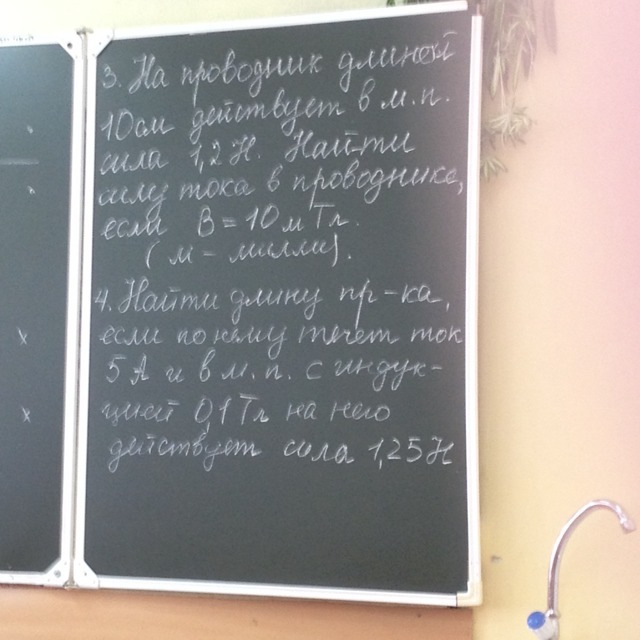 3. На проводник длиной
10см действует в м.п.
сила 1,2 Н. Найти
силу тока в проводнике,
если B = 10 мТл.
(м – милли).
4. Найти длину пр-ка,
если по нему течет ток
5 А и в м.п. с индук-
цией 0,1 Тл на него
действует сила 1,25 Н